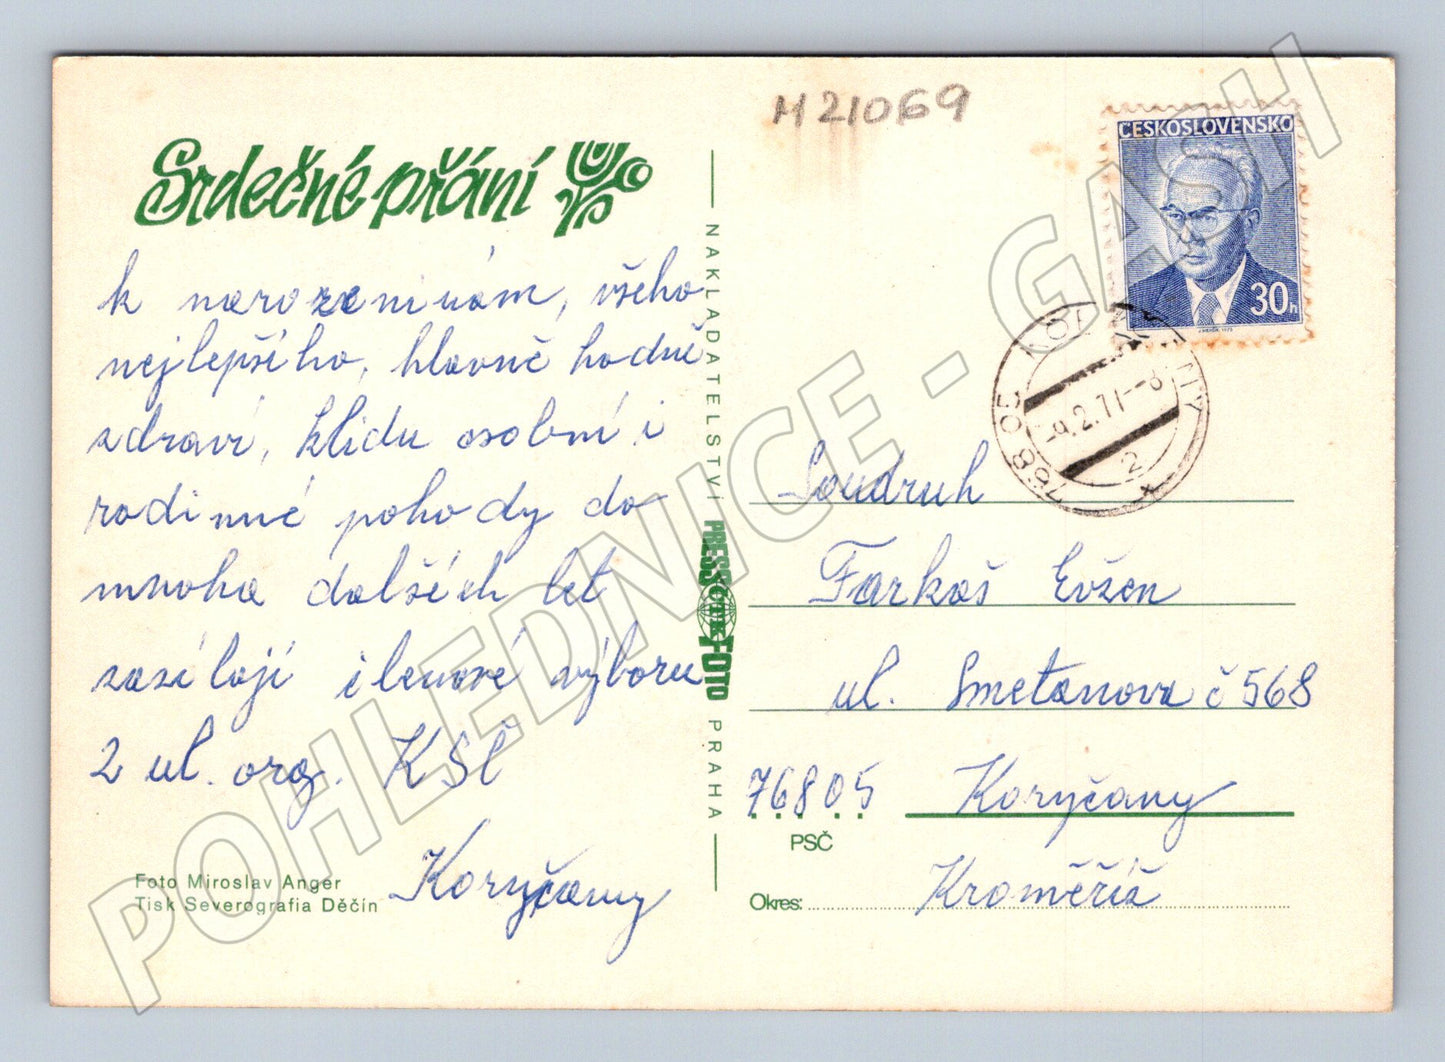 M21069
ČESKOSLOVENSKO
30h
Srdečné přání
k narozeninám, všeho
nejlepšího, hlavně hodně
zdraví, klidu osobní i
rodinné pohody do
mnoha dalších let
zasílají členové výboru
2 ul. org. KSČ
Koryčany
Foto Miroslav Anger
Tisk Severografia Děčín
NAKLADATELSTVÍ PRESSFOTO PRAHA
768 05 KORYČANY
-9.2.71-8
2
Soudruh
Farkaš Evžen
ul. Smetanova č 568
76805 Koryčany
PSČ
Okres: Kroměříž
POHLEDNICE - GASH